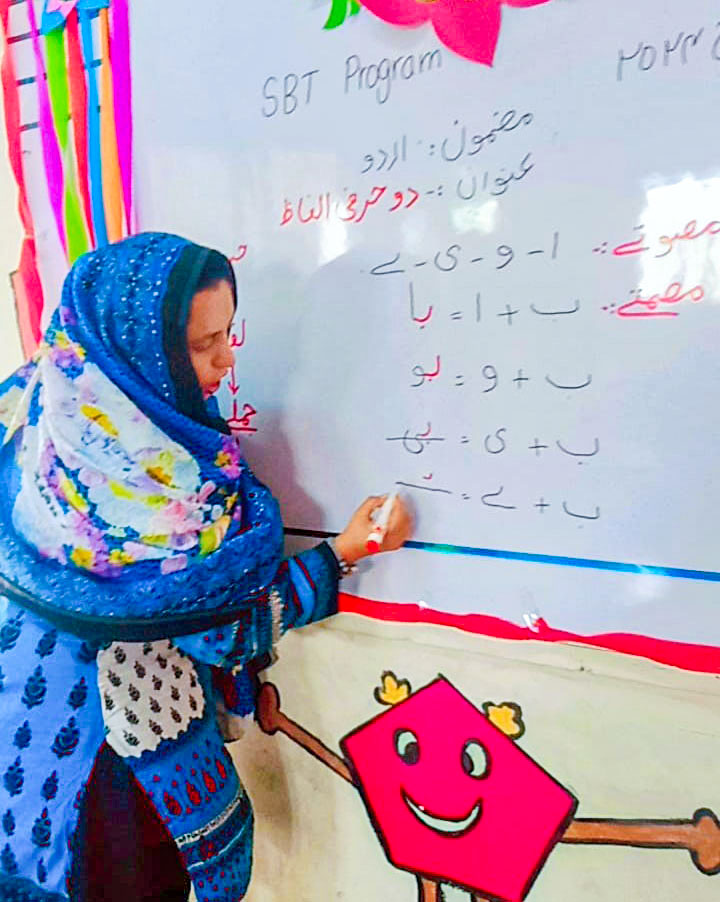 SBT Program
۲۰۲۳
مضمون:۔ اردو
عنوان:۔ دو حرفی الفاظ
مصوتے:۔ ا - و - ی - ے
مصمتے:۔ ب + ا = با
ب + و = بو
ب + ی = بی
ب + ے =
جملے